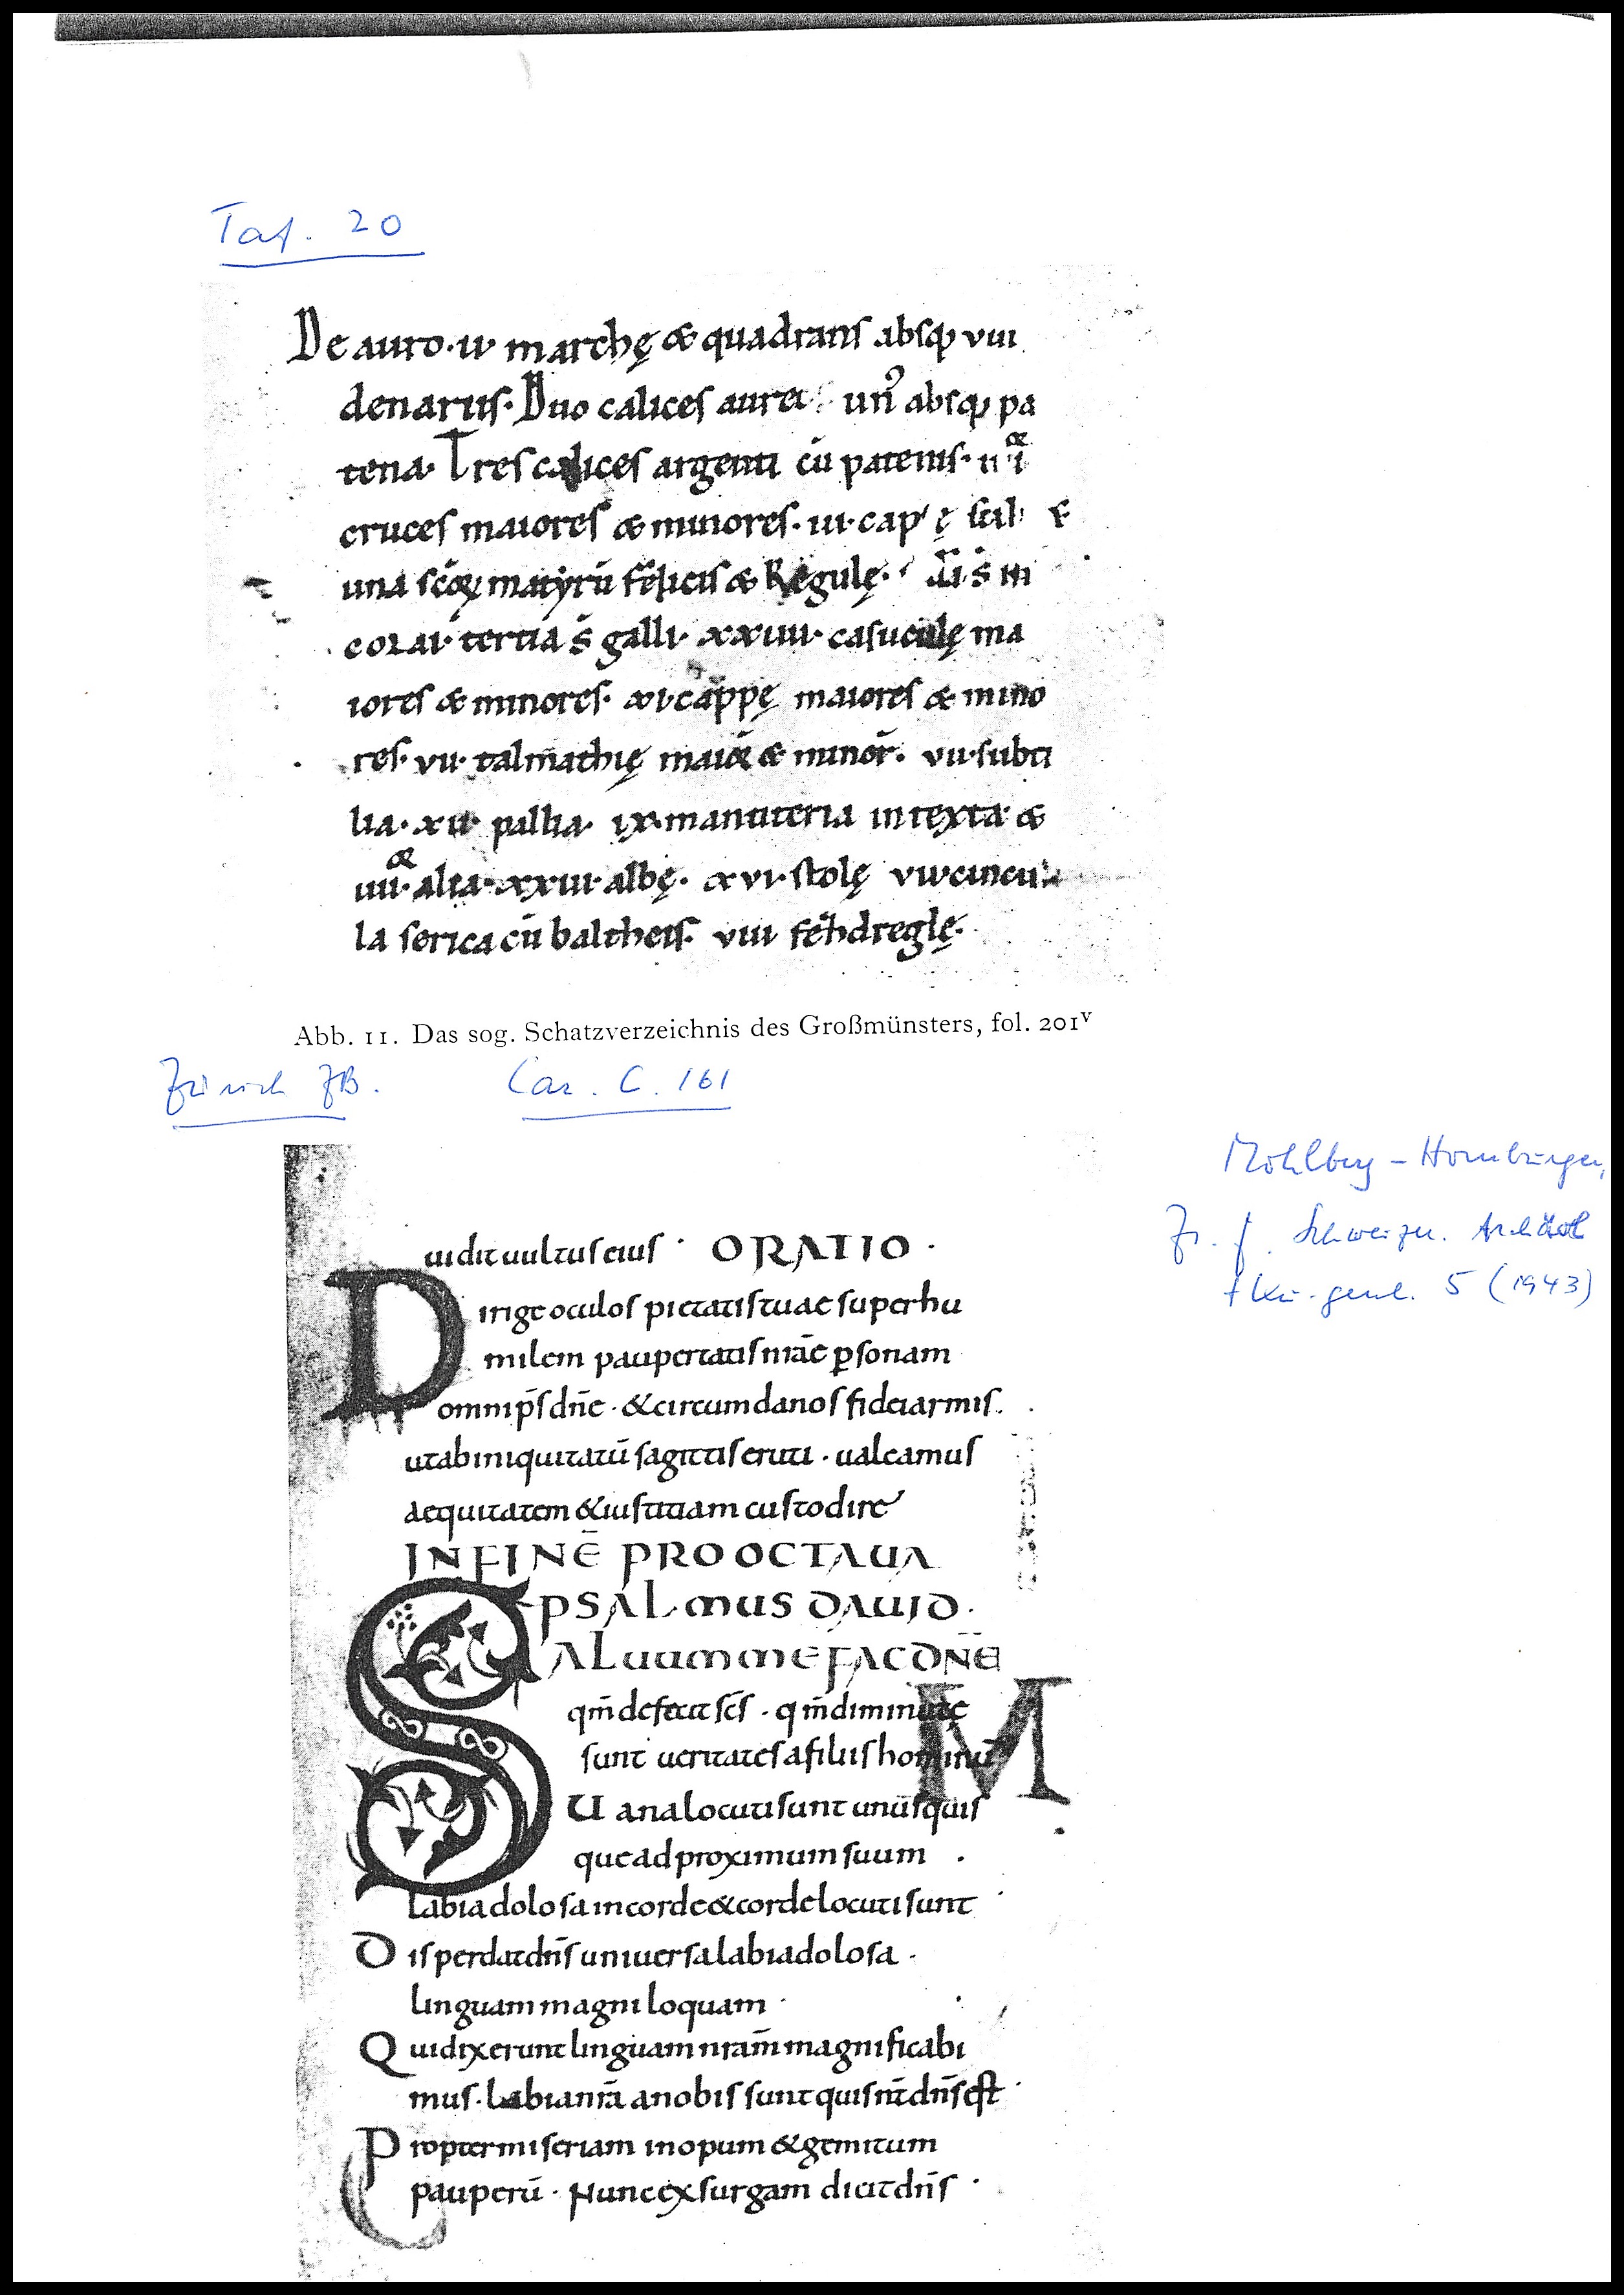 Taf. 20
De auro · ıı · marchę & quadrans absq; vııı
denariis · Duo calices aurei un᾽ absq; pa
tena · Tres calices argenti cū patenis ·
cruces maiores & minores · ııı · cap ę
una scōꝝ martyrū felicis & Regulę ·
tertia s̄ galli · xxıııı · casuculę ma
iores & minores · xı · cappę maiores & mino
res · vıı · talmathię maioꝝ & minor̄ · vıı · subti
lia · xıı · pallia · ıx · mantiteria intexta &
ıııı · alia · xxııı · albę · xvı · stolę cincu
la serica cū baltheis · vııı fēhdreglę ·
Abb. 11. Das sog. Schatzverzeichnis des Großmünsters, fol. 201v
Zürich ZB. Car. C. 161
Mohlberg – Homburger,
Zs. f. Schweizer. Archäol
+ Ku-gesch. 5 (1943)
uidit uultus eius · ORATIO ·
Dirige oculos pietatis tuae super hu
milem paupertatis nr̄ae ꝑsonam
omnip̄s dn̄e · & circumda nos fidei armis ·
ut ab iniquitatū sagittis eruti · ualeamus
aequitatem & iustitiam custodire
IN FINĒ PRO OCTAUA
PSALMUS DAUID ·
SALUUM ME FAC DN̄E
qm̄ defecit sc̄s · qm̄ diminutę
sunt ueritates a filiis hominū
Uana locuti sunt unusquis
que ad proximum suum ·
labia dolosa in corde & corde locuti sunt
Disperdat dn̄s uniuersa labia dolosa ·
linguam magniloquam ·
Qui dixerunt linguam nr̄am magnificabi
mus · labia nr̄a a nobis sunt quis nr̄ dn̄s est ·
Propter miseriam inopum & gemitum
pauperū · Nunc exsurgam dicit dn̄s ·